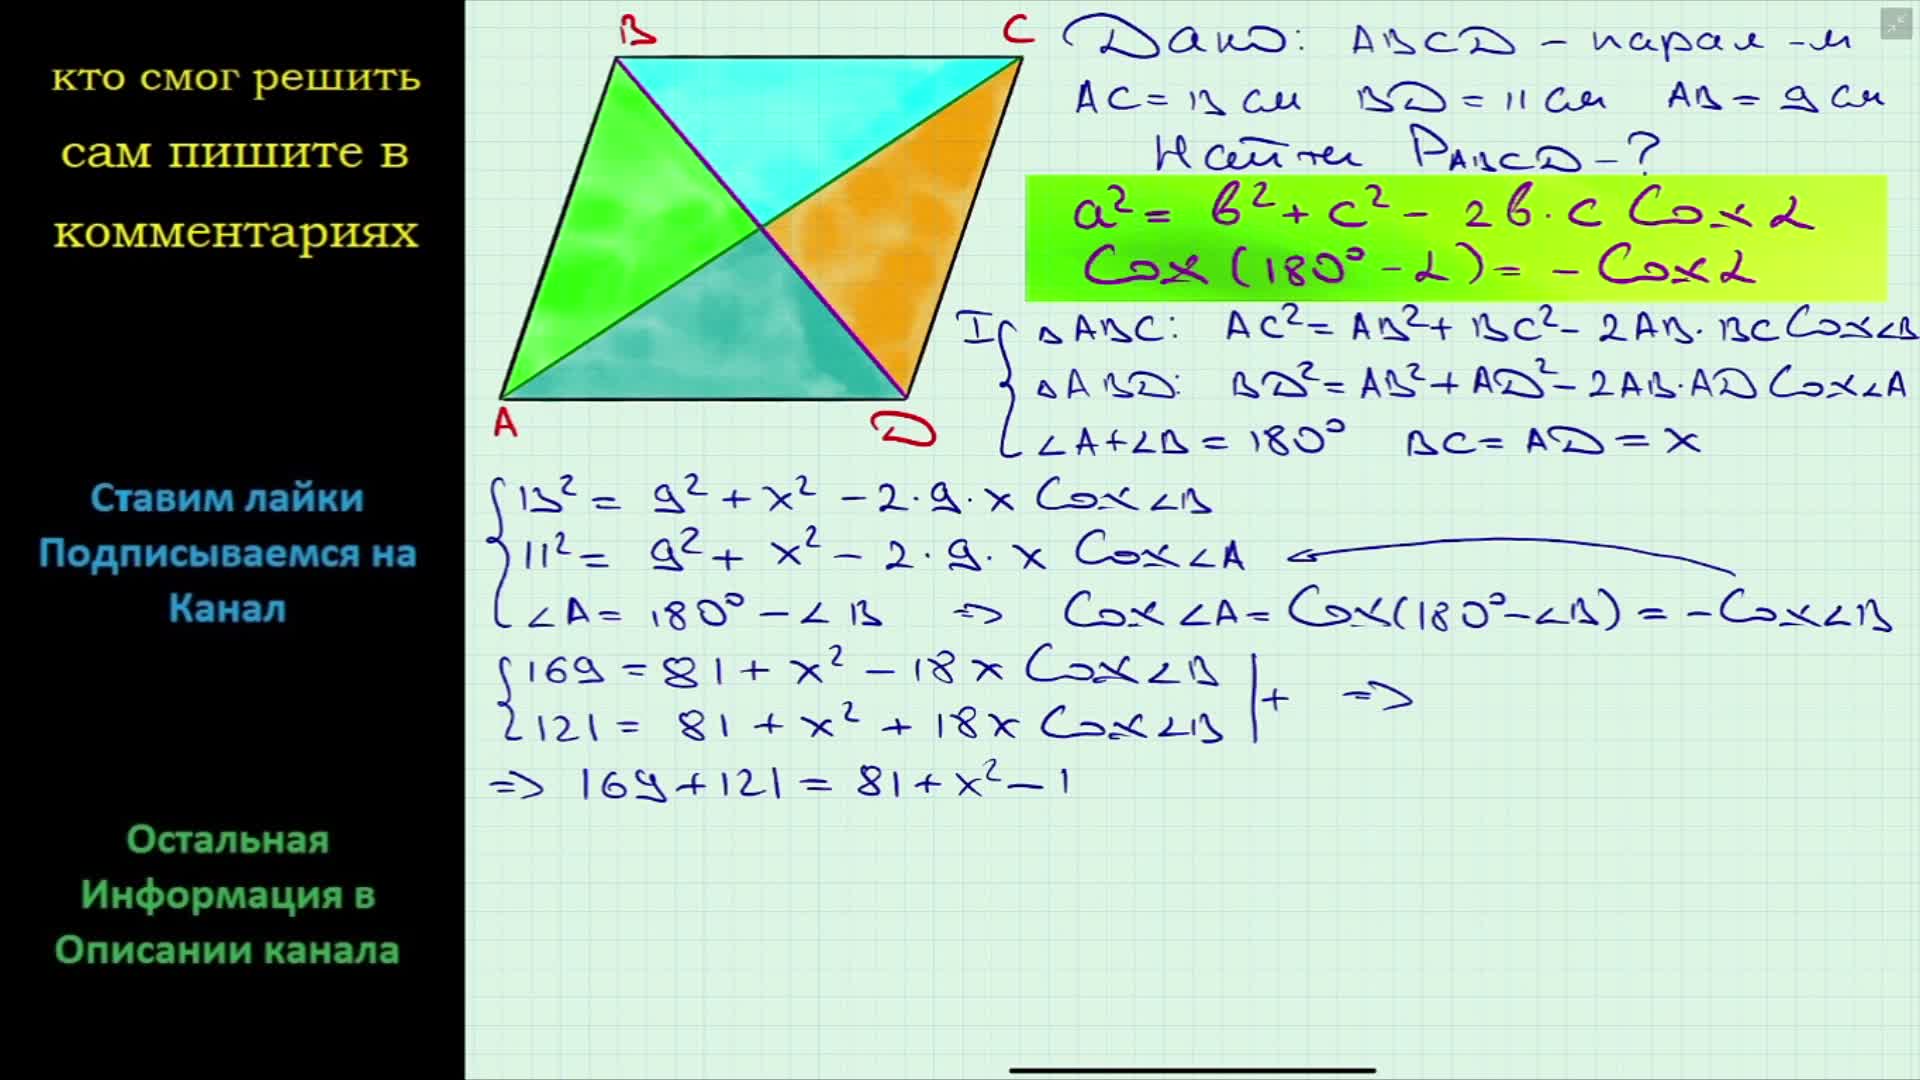 кто смог решить
сам пишите в
комментариях
Ставим лайки
Подписываемся на
Канал
Остальная
Информация в
Описании канала
B
C
A
D
Дано: ABCD – парал-м
AC = 13 см BD = 11 см AB = 9 см
Найти P_ABCD – ?
a² = b² + c² – 2b·c Cos α
Cos (180° – α) = – Cos α
I { △ABC: AC² = AB² + BC² – 2AB·BC Cos∠B
△ABD: BD² = AB² + AD² – 2AB·AD Cos∠A
∠A + ∠B = 180° BC = AD = x
{ 13² = 9² + x² – 2·9·x Cos∠B
11² = 9² + x² – 2·9·x Cos∠A
∠A = 180° – ∠B => Cos∠A = Cos(180° – ∠B) = – Cos∠B
{ 169 = 81 + x² – 18x Cos∠B | + =>
121 = 81 + x² + 18x Cos∠B
=> 169 + 121 = 81 + x² – 1